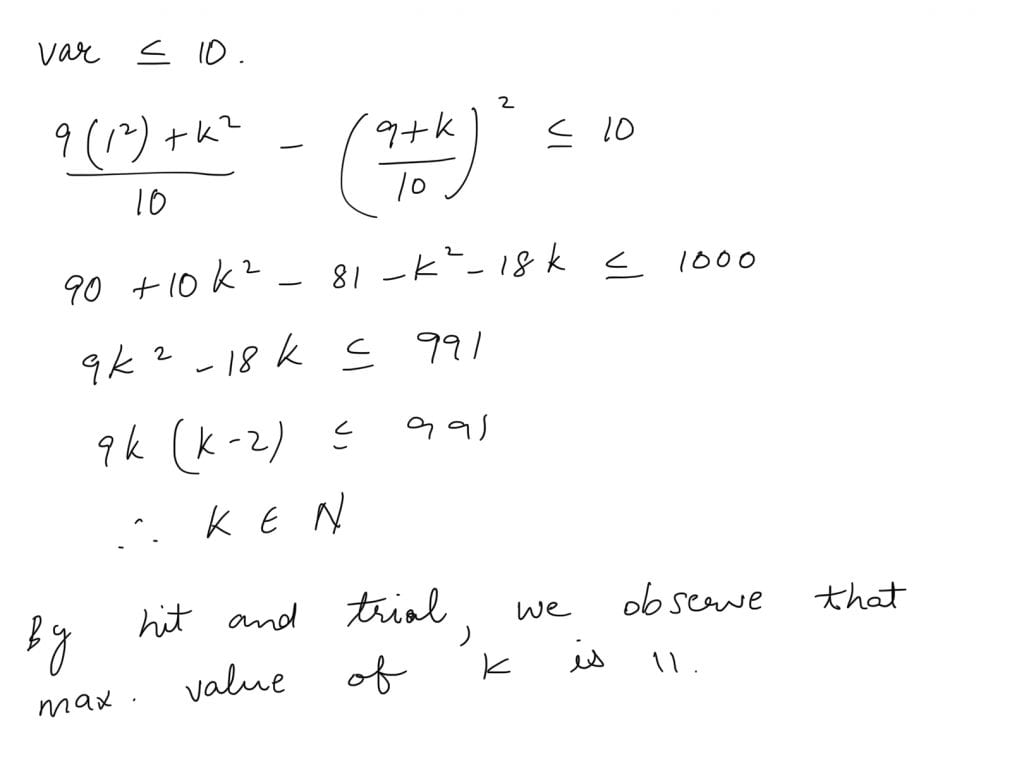 var ≤ 10.
(9(1²) + k²)/10 − ((9+k)/10)² ≤ 10
90 + 10k² − 81 − k² − 18k ≤ 1000
9k² − 18k ≤ 991
9k (k−2) ≤ 991
∴ K ∈ N
By hit and trial, we observe that
max. value of k is 11.